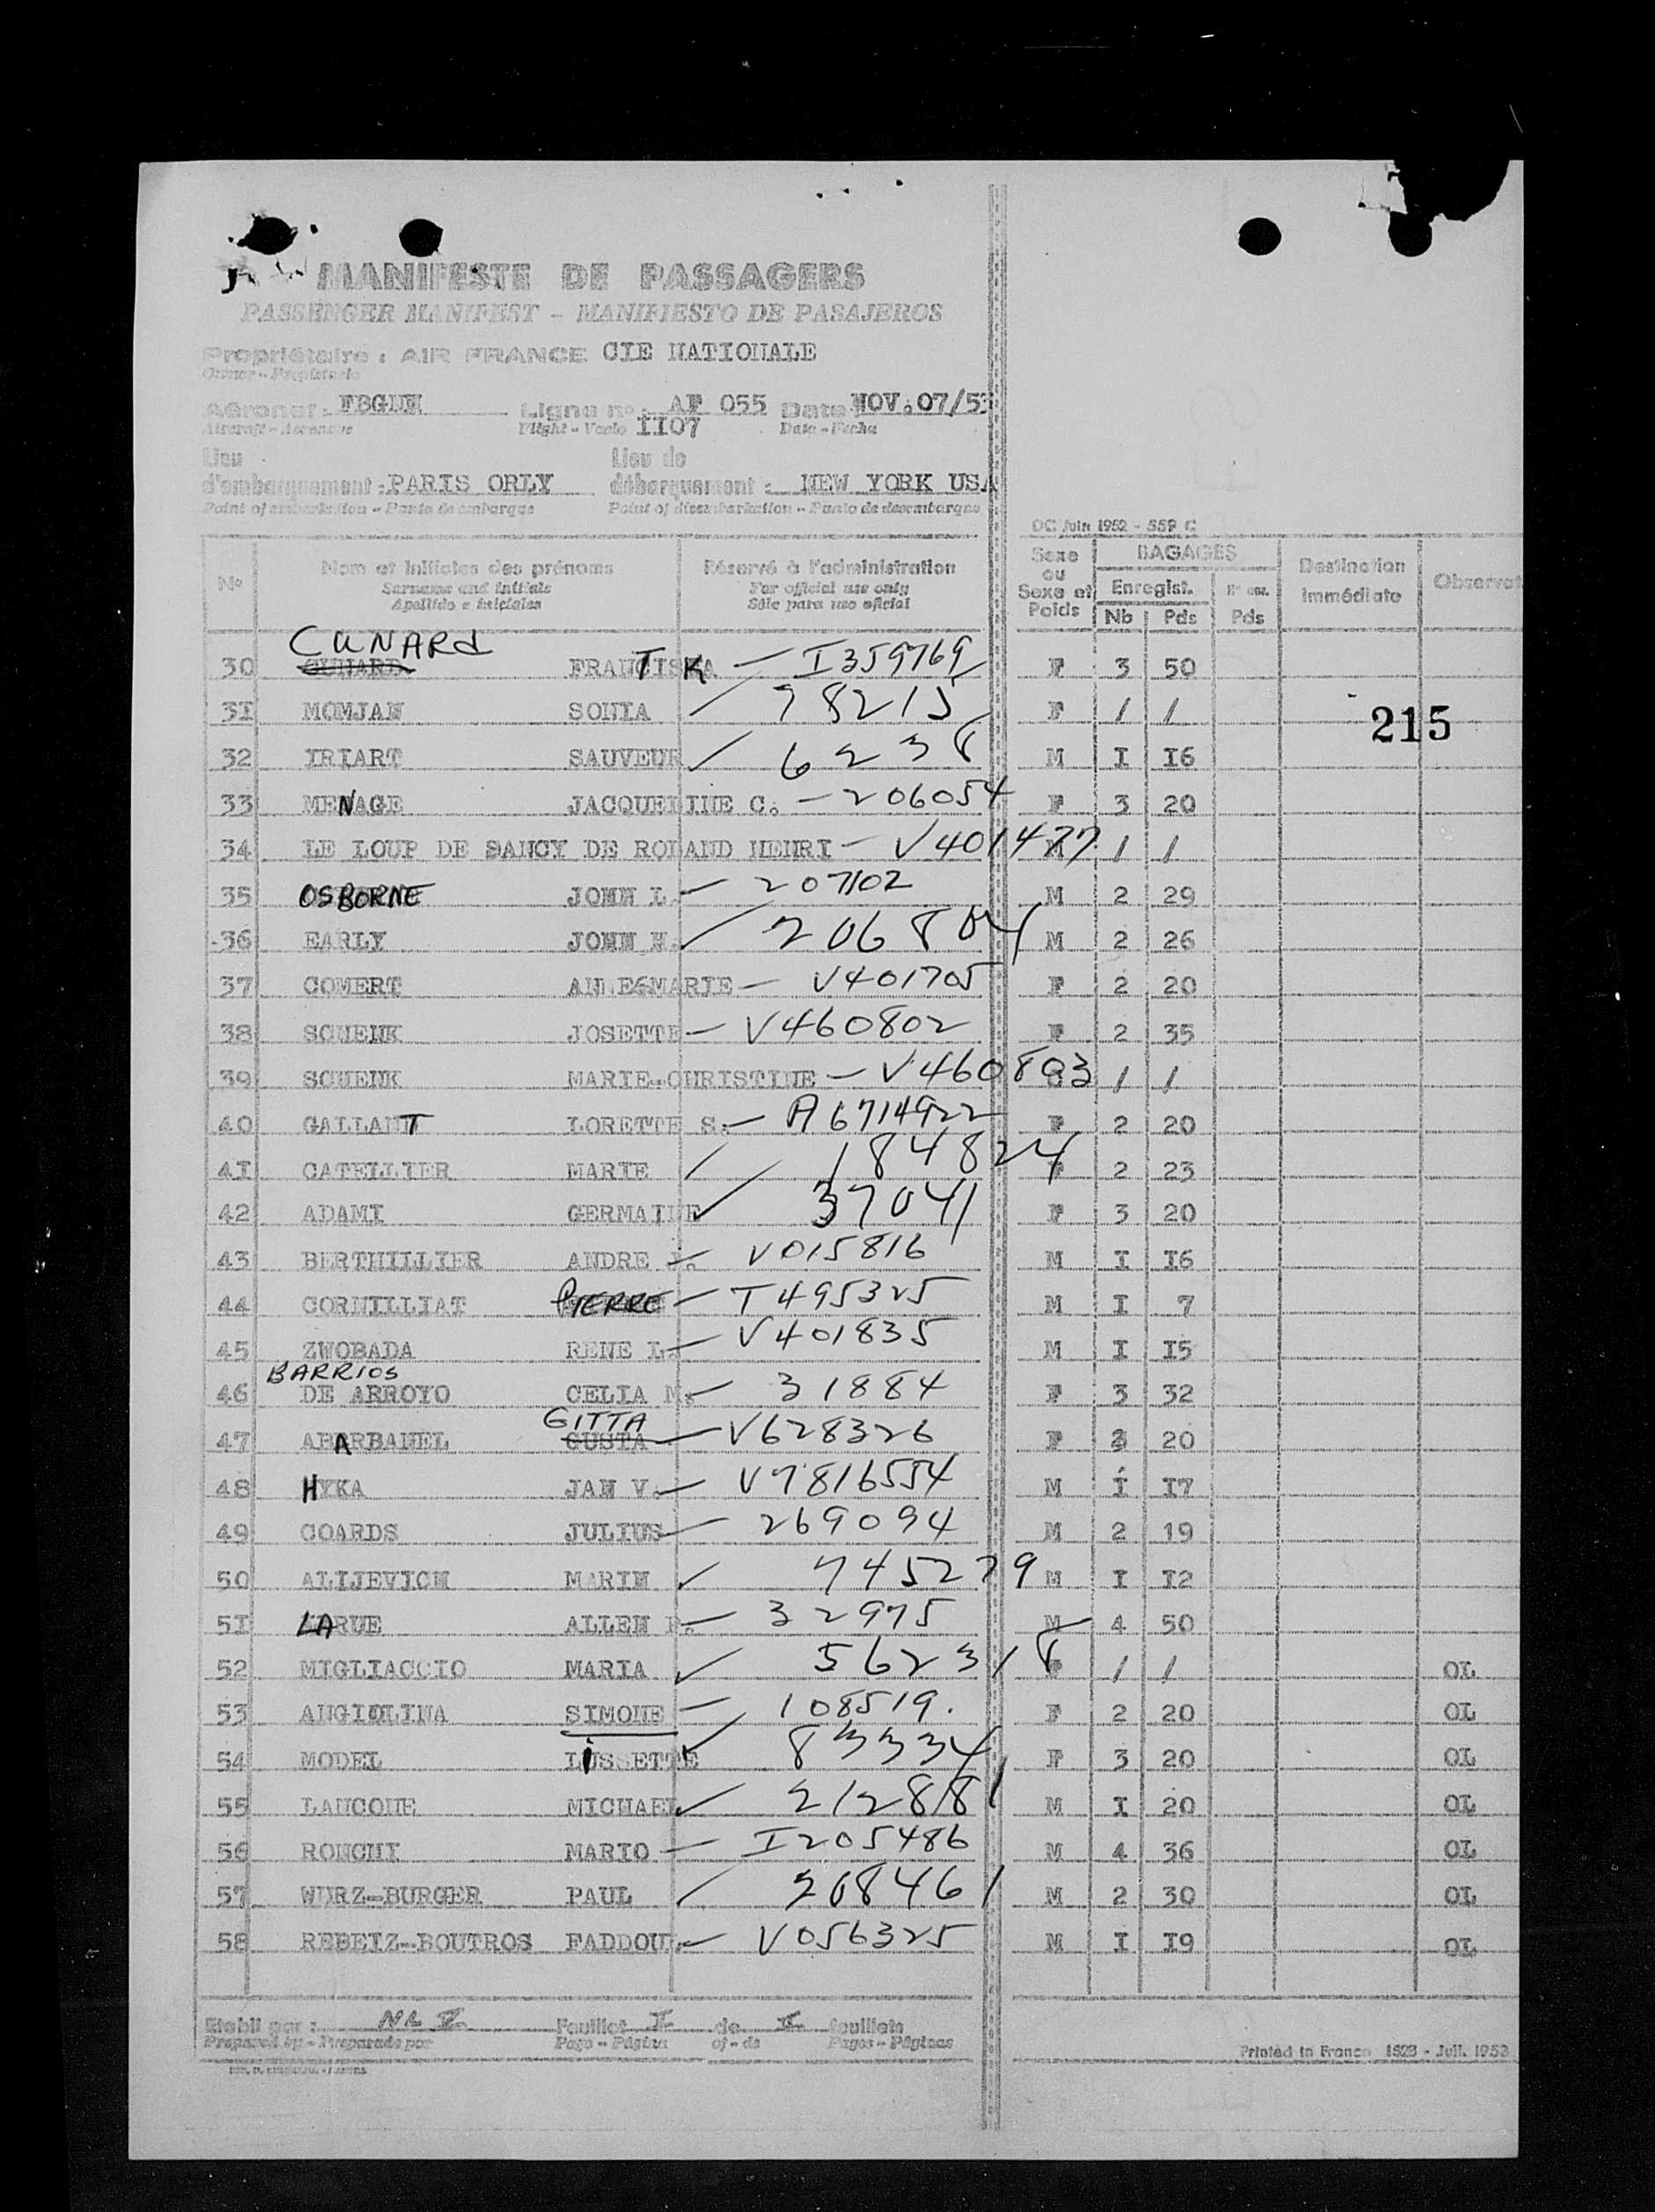 MANIFESTE DE PASSAGERS
PASSENGER MANIFEST - MANIFIESTO DE PASAJEROS
Propriétaire : AIR FRANCE CIE NATIONALE
Owner - Propietario
Aéronef : Ligne n° : AF 055 Date NOV.07/53
Aircraft - Aeronave Flight - Vuelo II07 Date - Fecha
Lieu d'embarquement : PARIS ORLY Lieu de débarquement : NEW YORK USA
Point of embarkation - Punto de embarque Point of disembarkation - Punto de desembarque
OC Juin 1952 - 559 C
N° Nom et initiales des prénoms Réservé à l'administration Sexe ou Sexe et Poids BAGAGES Destination immédiate Observat
Surname and initials For official use only Enregist.
Apellido e iniciales Sólo para uso oficial Nb Pds Pds
CUNARd
30 CUNARD FRANTISKA — I359769 F 3 50
3I MOMJAN SONIA 78215 F / /
215
32 IRIART SAUVEUR ✓ 6238 M I I6
33 MENAGE JACQUELINE C. — 206054 F 3 20
34 LE LOUP DE SANCY DE ROLAND HENRI — V401477 / /
35 OSBORNE JOHN L. — 207102 M 2 29
36 EARLY JOHN H. ✓ 206804 M 2 26
37 COMERT ANNE-MARIE — V401705 F 2 20
38 SCHENK JOSETTE — V460802 F 2 35
39 SCHENK MARIE-CHRISTINE — V460803 / /
40 GALLANT LORETTE S. — A6714922 F 2 20
4I CATELLIER MARIE 184824 F 2 23
42 ADAMI GERMAINE ✓ 37041 F 3 20
43 BERTHILLIER ANDRE J. — V015816 M I I6
44 CORNILLIAT PIERRE — T495325 M I 7
45 ZWOBADA RENE L. — V401835 M I I5
BARRIOS
46 DE ARROYO CELIA M. — 31884 F 3 32
GITTA
47 ABARBANEL GUSTA — V628326 F 3 20
48 HYKA JAN V. — V7816554 M I I7
49 COARDS JULIUS — 269094 M 2 19
50 ALIJEVICH MARIN ✓ 745279 M I I2
5I LARUE ALLEN — 32975 M 4 50
52 MIGLIACCIO MARIA ✓ 562318 F / / OL
53 ANGIOLINA SIMONE — 108519. F 2 20 OL
54 MODEL LISSETTE ✓ 83334 F 3 20 OL
55 LANCONE MICHAEL ✓ 212881 M I 20 OL
56 RONCHI MARIO — I205486 M 4 36 OL
57 WURZ-BURGER PAUL 208461 M 2 30 OL
58 REBEIZ-BOUTROS FADDOUL — V056325 M I I9 OL
Etabli par : Feuillet I de feuillets
Prepared by - Preparado por Page - Página of - de Pages - Páginas
Printed in France 1528 - Juil. 1953